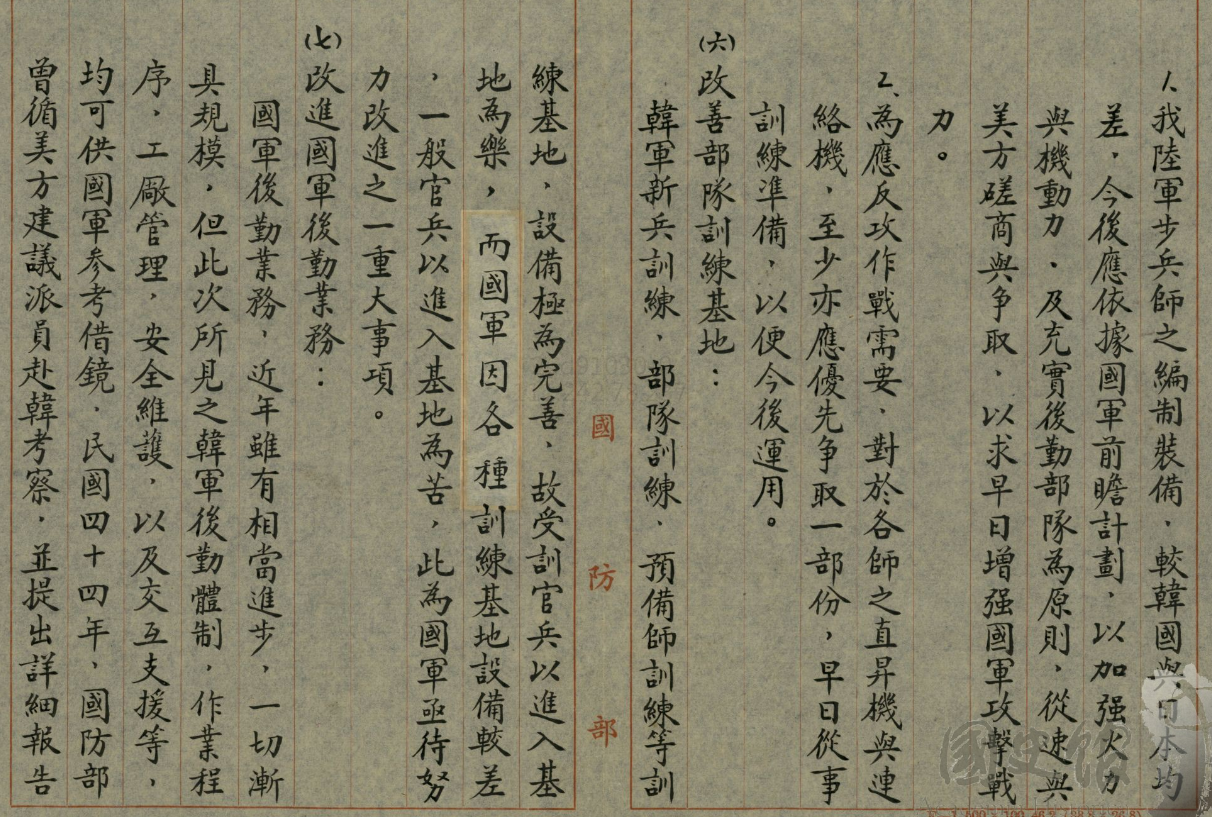 1、我陸軍步兵師之編制裝備、較韓國與日本均
差，今後應依據國軍前瞻計劃，以加强火力
與機動力、及充實後勤部隊為原則，從速與
美方磋商與争取、以求早日增强國軍攻擊戰
力。
2、為應反攻作戰需要、對於各師之直昇機與連
絡機，至少亦應優先争取一部份，早日從事
訓練準備，以便今後運用。
(六)改善部隊訓練基地：
韓軍新兵訓練、部隊訓練、預備師訓練等訓
國防部
練基地、設備極為完善、故受訓官兵以進入基
地為樂，而國軍因各種訓練基地設備較差
，一般官兵以進入基地為苦，此為國軍亟待努
力改進之一重大事項。
(七)改進國軍後勤業務：
國軍後勤業務，近年雖有相當進步，一切漸
具規模，但此次所見之韓軍後勤體制，作業程
序，工廠管理，安全維護，以及交互支援等，
均可供國軍参考借鏡，民國四十四年，國防部
曾循美方建議派員赴韓考察，並提出詳細報告
國史館